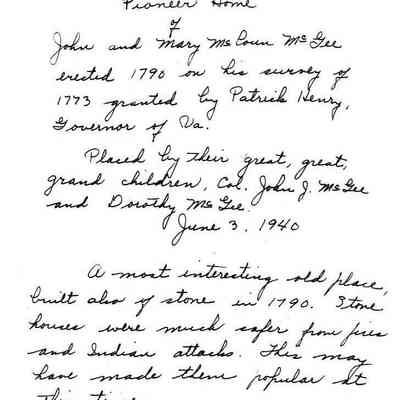 Pioneer Home
of
John and Mary McCoun McGee
erected 1790 on his survey of
1773 granted by Patrick Henry,
Governor of Va.
Placed by their great, great,
grand children, Col. John J. McGee
and Dorothy McGee.
June 3, 1940
A most interesting old place,
built also of stone in 1790. Stone
houses were much safer from fires
and Indian attacks. This may
have made them popular at
this time